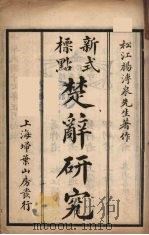 松江楊溥泉先生著作
新式
標點
楚辭研究
上海掃葉山房發行